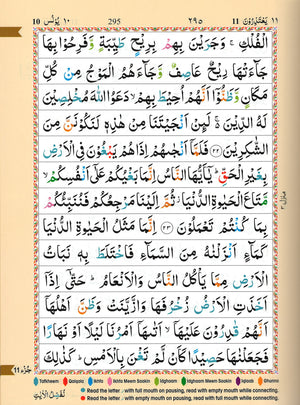 10 يُوْنُس ١٠ 295 ٢٩٥ 11 يَعْتَذِرُوْنَ ١١
الْفُلْكِ ۚ وَجَرَيْنَ بِهِمْ بِرِيْحٍ طَيِّبَةٍ وَّفَرِحُوْا بِهَا
جَآءَتْهَا رِيْحٌ عَاصِفٌ وَّجَآءَهُمُ الْمَوْجُ مِنْ كُلِّ
مَكَانٍ وَّظَنُّوْٓا اَنَّهُمْ اُحِيْطَ بِهِمْ ۙ دَعَوُا اللّٰهَ مُخْلِصِيْنَ
لَهُ الدِّيْنَ ۚ لَئِنْ اَنْجَيْتَنَا مِنْ هٰذِهٖ لَنَكُوْنَنَّ مِنَ
الشّٰكِرِيْنَ ﴿۲۲﴾ فَلَمَّآ اَنْجٰىهُمْ اِذَا هُمْ يَبْغُوْنَ فِى الْاَرْضِ
بِغَيْرِ الْحَقِّ ؕ يٰۤاَيُّهَا النَّاسُ اِنَّمَا بَغْيُكُمْ عَلٰٓى اَنْفُسِكُمْ ۙ
مَّتَاعَ الْحَيٰوةِ الدُّنْيَا ؗ ثُمَّ اِلَيْنَا مَرْجِعُكُمْ فَنُنَبِّئُكُمْ
بِمَا كُنْتُمْ تَعْمَلُوْنَ ﴿۲۳﴾ اِنَّمَا مَثَلُ الْحَيٰوةِ الدُّنْيَا
كَمَآءٍ اَنْزَلْنٰهُ مِنَ السَّمَآءِ فَاخْتَلَطَ بِهٖ نَبَاتُ
الْاَرْضِ مِمَّا يَاْكُلُ النَّاسُ وَالْاَنْعَامُ ؕ حَتّٰٓى اِذَآ
اَخَذَتِ الْاَرْضُ زُخْرُفَهَا وَازَّيَّنَتْ وَظَنَّ اَهْلُهَآ
اَنَّهُمْ قٰدِرُوْنَ عَلَيْهَآ ۙ اَتٰىهَآ اَمْرُنَا لَيْلًا اَوْ نَهَارًا
فَجَعَلْنٰهَا حَصِيْدًا كَاَنْ لَّمْ تَغْنَ بِالْاَمْسِ ؕ كَذٰلِكَ
مَنْزِل ٣
جُزء ١١ 11
Tafkheem Qalqala Ikhfa Ikhfa Meem Saakin Idghaam Idghaam Meem Saakin Iqlaab Ghunna
نُفَصِّلُ الْاٰيٰتِ
Read the letter و with full mouth on pausing, read with empty mouth while connecting.
Read the letter ر with full mouth on pausing, read with empty mouth while connecting.